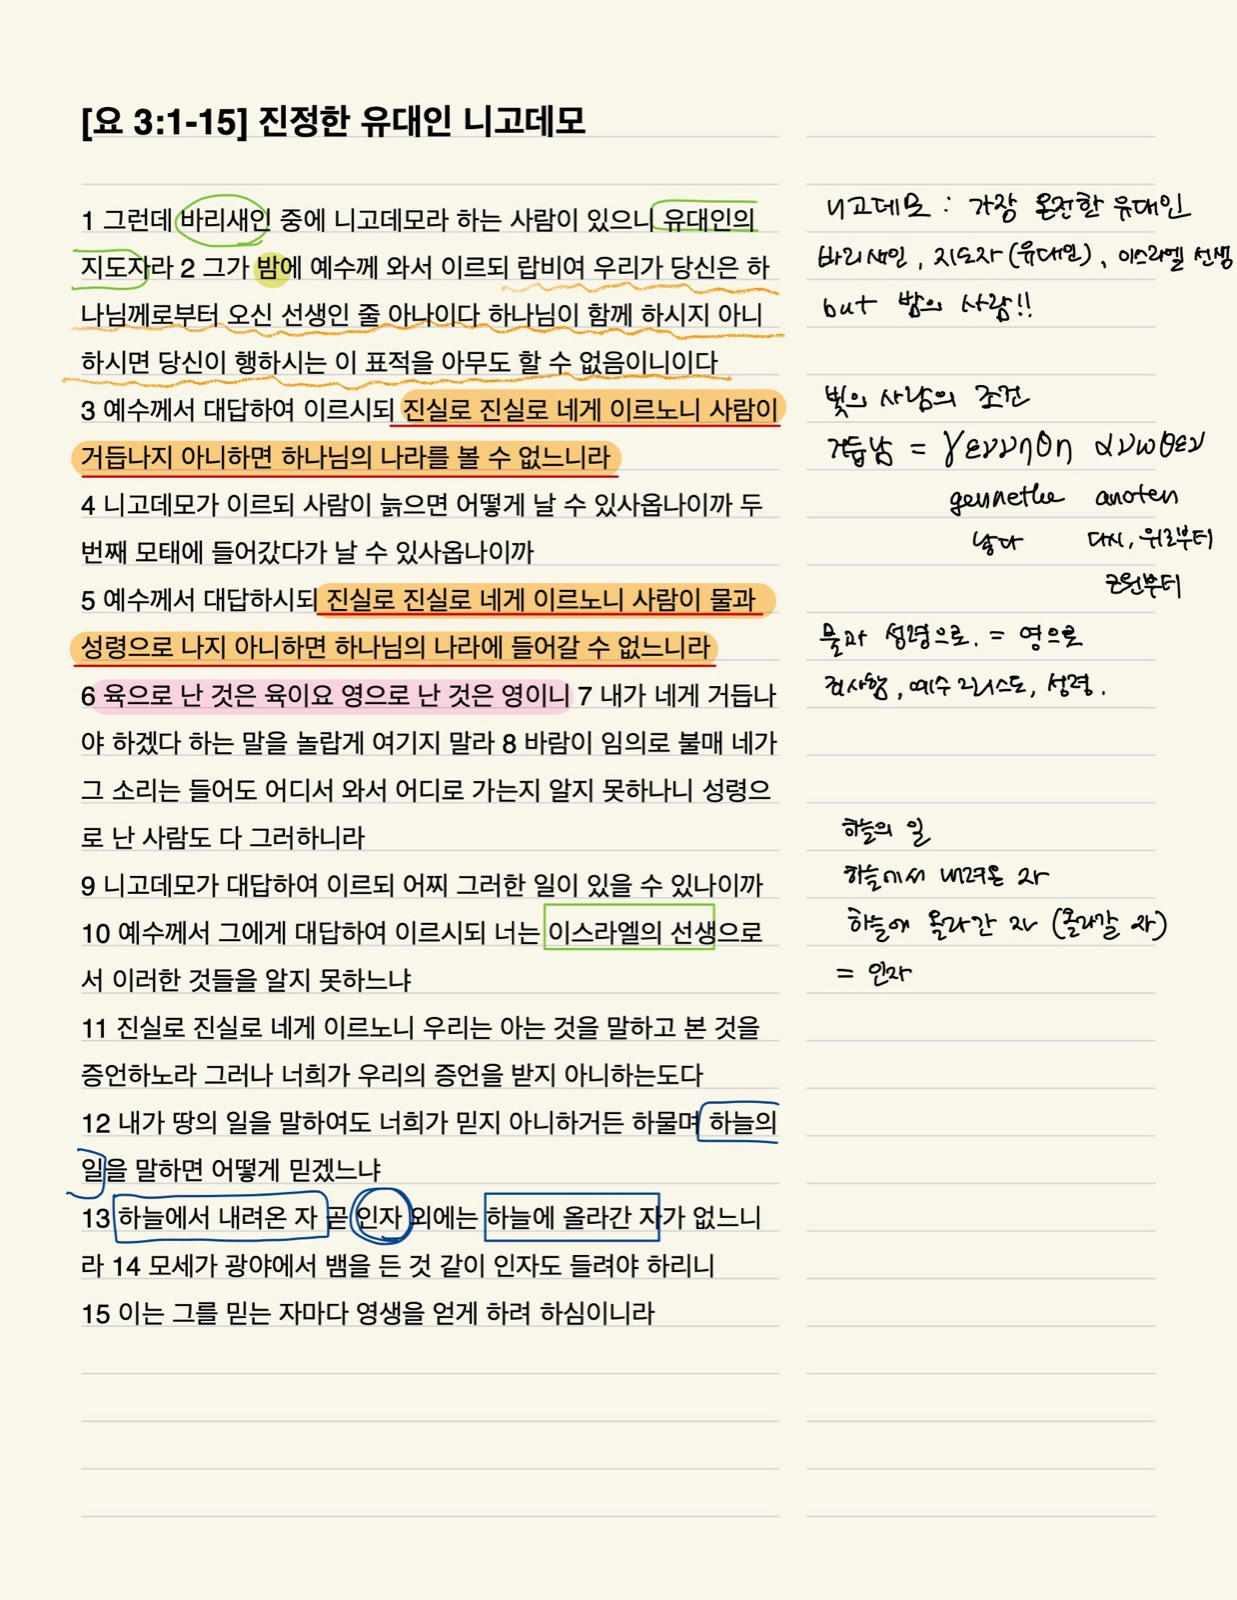 [요 3:1-15] 진정한 유대인 니고데모
1 그런데 바리새인 중에 니고데모라 하는 사람이 있으니 유대인의
지도자라 2 그가 밤에 예수께 와서 이르되 랍비여 우리가 당신은 하
나님께로부터 오신 선생인 줄 아나이다 하나님이 함께 하시지 아니
하시면 당신이 행하시는 이 표적을 아무도 할 수 없음이니이다
3 예수께서 대답하여 이르시되 진실로 진실로 네게 이르노니 사람이
거듭나지 아니하면 하나님의 나라를 볼 수 없느니라
4 니고데모가 이르되 사람이 늙으면 어떻게 날 수 있사옵나이까 두
번째 모태에 들어갔다가 날 수 있사옵나이까
5 예수께서 대답하시되 진실로 진실로 네게 이르노니 사람이 물과
성령으로 나지 아니하면 하나님의 나라에 들어갈 수 없느니라
6 육으로 난 것은 육이요 영으로 난 것은 영이니 7 내가 네게 거듭나
야 하겠다 하는 말을 놀랍게 여기지 말라 8 바람이 임의로 불매 네가
그 소리는 들어도 어디서 와서 어디로 가는지 알지 못하나니 성령으
로 난 사람도 다 그러하니라
9 니고데모가 대답하여 이르되 어찌 그러한 일이 있을 수 있나이까
10 예수께서 그에게 대답하여 이르시되 너는 이스라엘의 선생으로
서 이러한 것들을 알지 못하느냐
11 진실로 진실로 네게 이르노니 우리는 아는 것을 말하고 본 것을
증언하노라 그러나 너희가 우리의 증언을 받지 아니하는도다
12 내가 땅의 일을 말하여도 너희가 믿지 아니하거든 하물며 하늘의
일을 말하면 어떻게 믿겠느냐
13 하늘에서 내려온 자 곧 인자 외에는 하늘에 올라간 자가 없느니
라 14 모세가 광야에서 뱀을 든 것 같이 인자도 들려야 하리니
15 이는 그를 믿는 자마다 영생을 얻게 하려 하심이니라
니고데모 : 가장 온전한 유대인
바리새인, 지도자(유대인), 이스라엘 선생
but 밤의 사람!!
빛의 사람의 조건
거듭남 = γεννηθη ανωθεν
gennethe anoten
낳다 다시, 위로부터
근원부터
물과 성령으로. = 영으로
죄사함, 예수 그리스도, 성령.
하늘의 일
하늘에서 내려온 자
하늘에 올라간 자 (올라갈 자)
= 인자